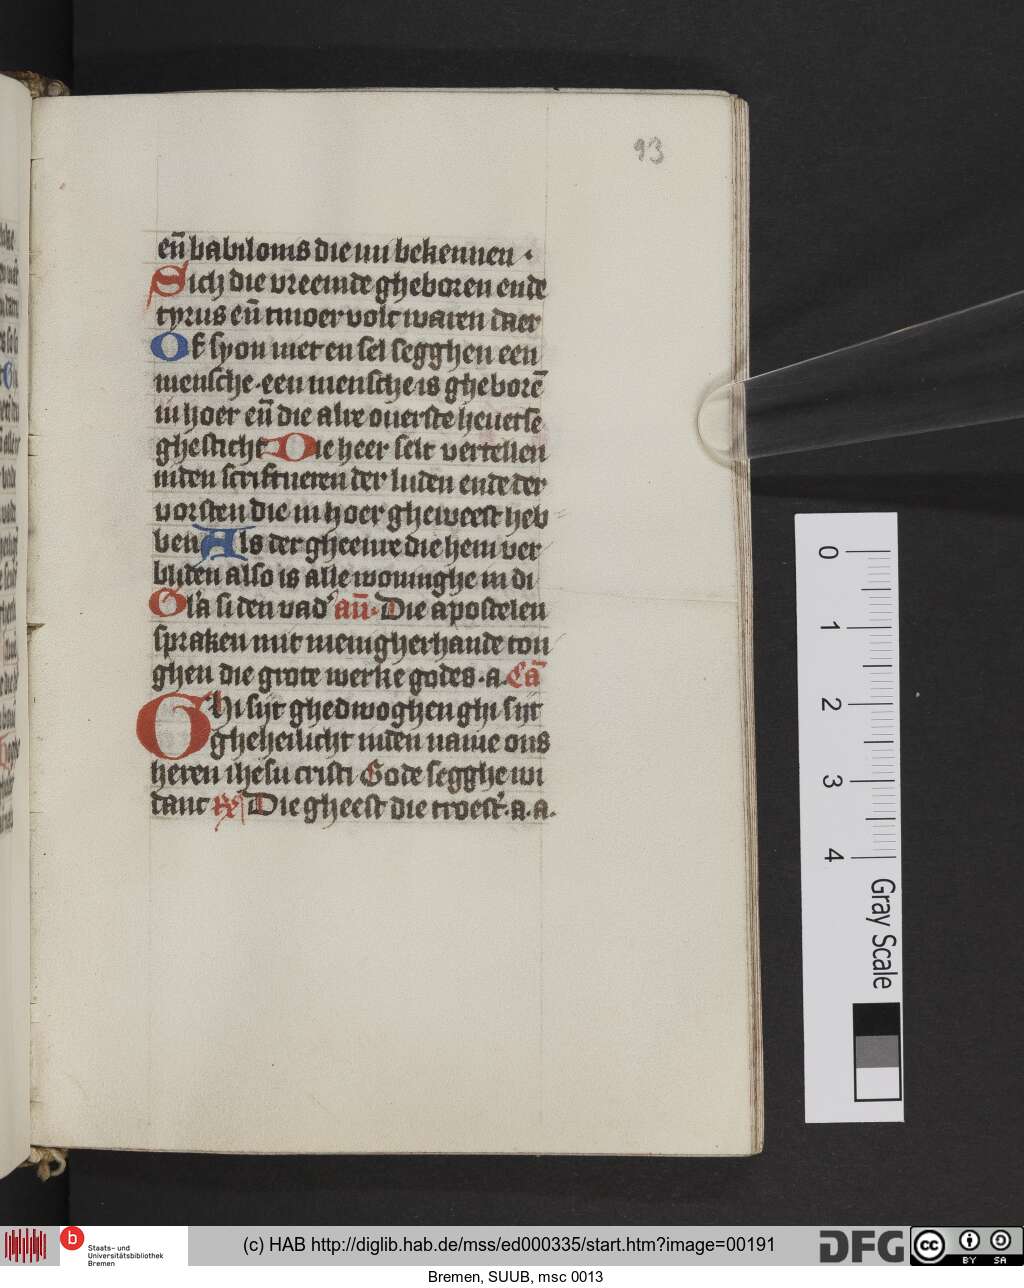 93
en̄ babilonis die mi bekennen ·
Sich die vreemde gheboren ende
tyrus en̄ tmoer volc waren daer
Of syon niet en sel segghen een
mensche·een mensche is gheborē
in hoer en̄ die alre ouerste heuetse
ghesticht Die heer selt vertellen
inden scriftueren der luden ende der
vorsten die in hoer gheweest heb
ben Als der gheenre die hem ver
bliden also is alle woninghe in di
Gl'a si den vad' an̄· Die apostelen
spraken mit menigherhande ton
ghen die grote werke godes·a· Ca̅
Ghi sijt ghedwoghen ghi sijt
gheheilicht inden name ons
heren ihesu cristi Gode segghe wi
danc R̸ Die gheest die troest'·a·a·
0
1
2
3
4
Gray Scale
b
Staats- und
Universitätsbibliothek
Bremen
(c) HAB http://diglib.hab.de/mss/ed000335/start.htm?image=00191
DFG
cc
BY SA
Bremen, SUUB, msc 0013